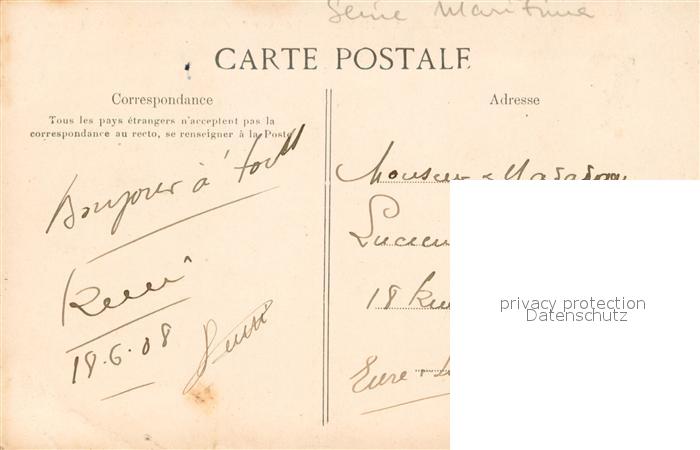 Seine Maritime
CARTE POSTALE
Correspondance
Tous les pays étrangers n'acceptent pas la
correspondance au recto, se renseigner à la Poste
Bonjour à tous
18.6.08
Adresse
Monsieur & Madame
Lucien
18 Rue
Eure
privacy protection
Datenschutz